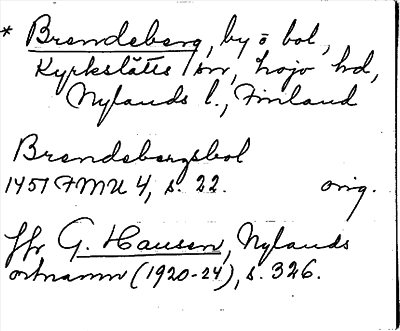 * Brendeberg, by o bol,
Kyrkslätts sn, Lojo hd,
Nylands l., Finland
Brendebergsbol
1451 FMU 4, s. 22. orig.
Jfr G. Hausen, Nylands
ortnamn (1920-24), s. 326.